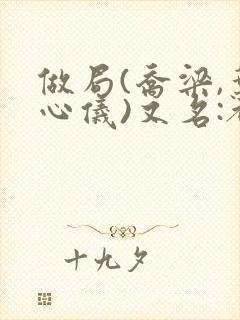 做局(乔梁,
心仪)又名:
十九夕